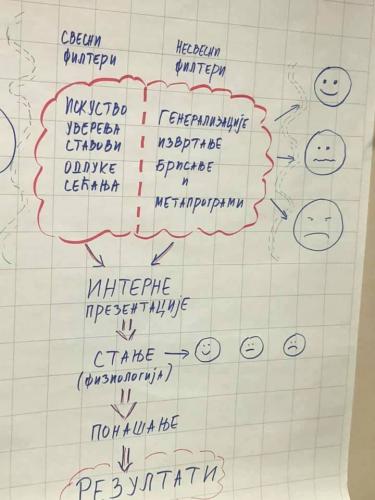 СВЕСНИ
ФИЛТЕРИ
НЕСВЕСНИ
ФИЛТЕРИ
ИСКУСТВО
УВЕРЕЊА
СТАВОВИ
ОДЛУКЕ
СЕЋАЊА
ГЕНЕРАЛИЗАЦИЈЕ
ИЗВРТАЊЕ
БРИСАЊЕ
И
МЕТАПРОГРАМИ
ИНТЕРНЕ
ПРЕЗЕНТАЦИЈЕ
СТАЊЕ
(ФИЗИОЛОГИЈА)
ПОНАШАЊЕ
РЕЗУЛТАТИ